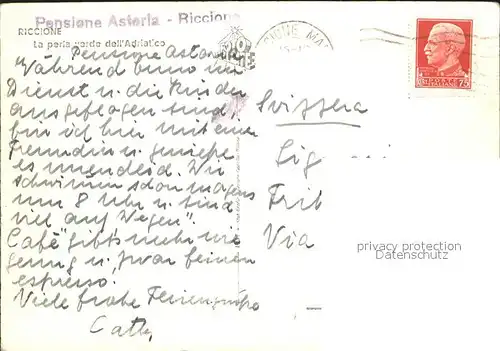 Pensione Astoria - Riccione
RICCIONE
La perla verde dell'Adriatico
Pensione Astoria
Während Benno im
Dienst u. die Kinder
ausgeflogen sind,
bin ich hier mit einer
Freundin u. genieße
es unendlich. Wir
schwimmen schon morgens
um 8 Uhr u. sind
viel auf Wegen".
Café gibt's mehr wie
genug u. zwar feinen
espresso.
Viele frohe Feriengrüße
Svizzera
Sig
Via
75
privacy protection
Datenschutz